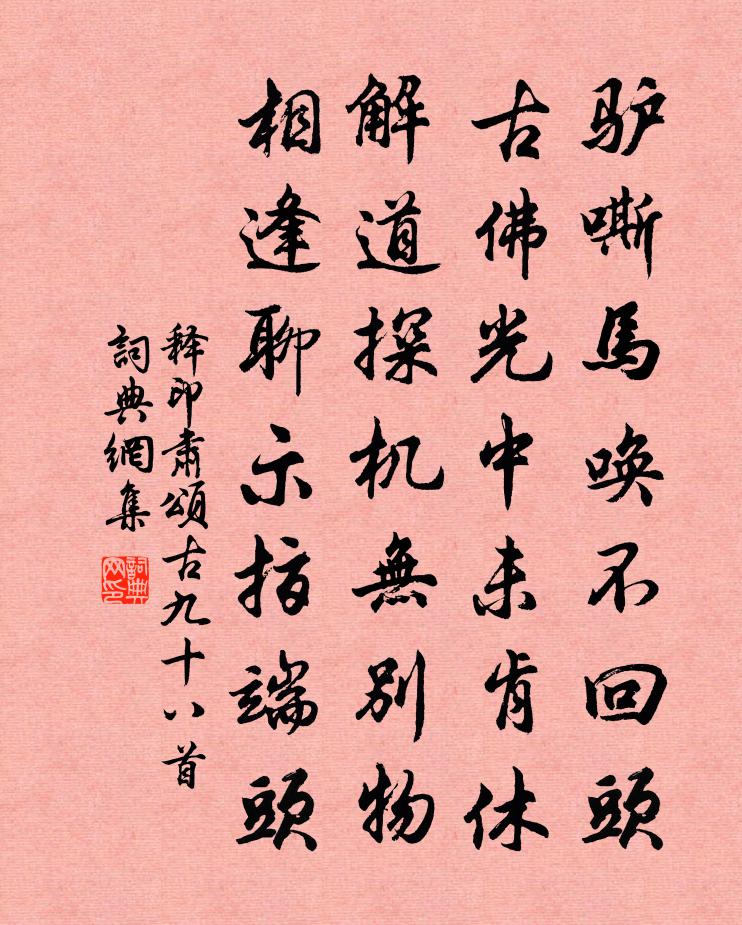 驴嘶馬唤不回頭
古佛光中未肯休
解道探机無别物
相逢聊示指端頭
释印肃頌古九十八首
詞典網集
詞典网印